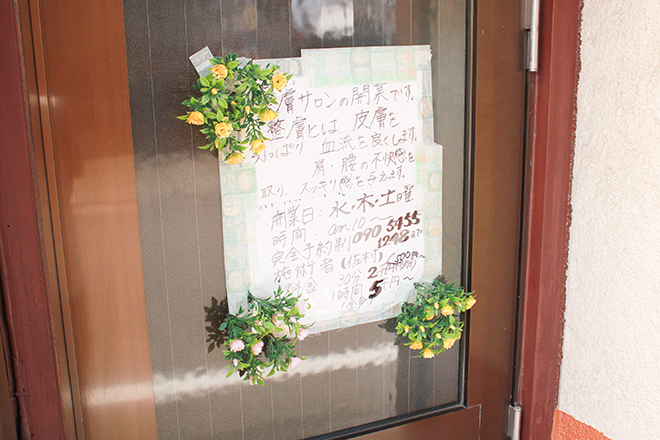 層サロンの開業です。
整層とは 皮膚を
引っぱり 血流を良くします。
肩・腰の不快感を
取り、スッキリ感を与えます。
開業日：水・木・土曜
時間：am10～
完全予約制 090 5455
1248まで
施術者（佐村）
30分 2
1時間 5千円～